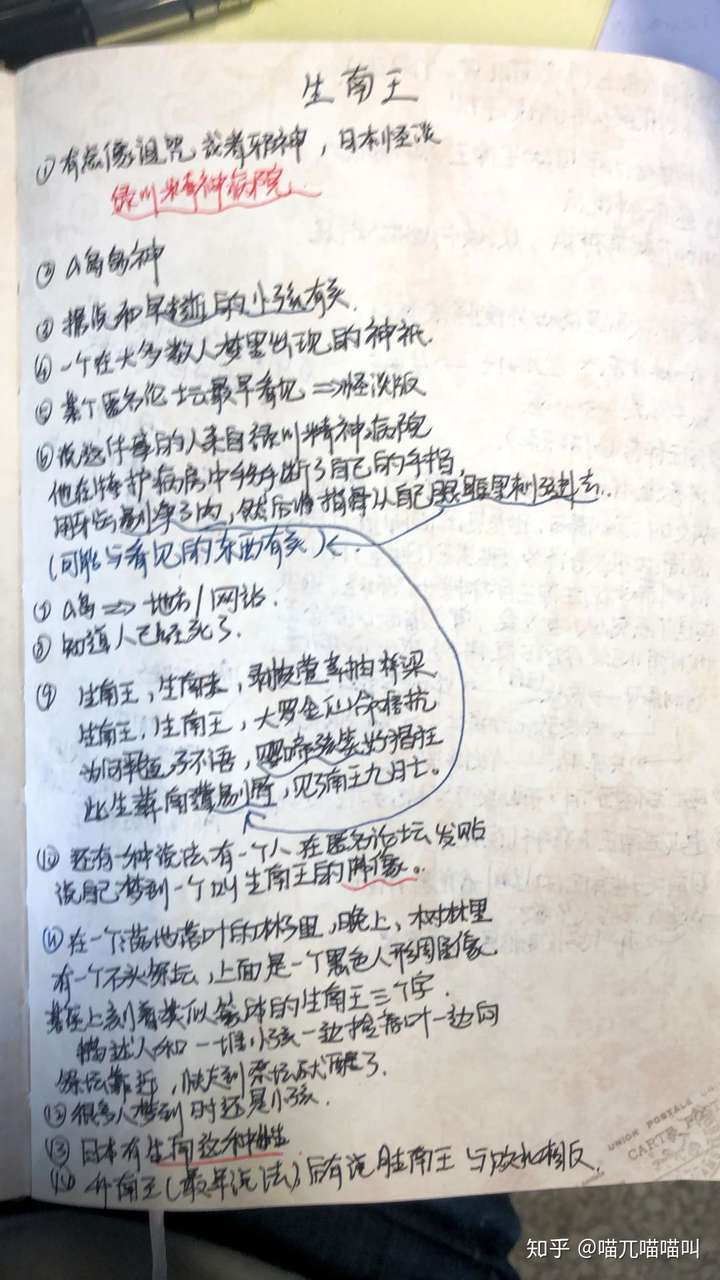 生南王
① 有点像诅咒或者邪神，日本怪谈
绿川精神病院
② A岛岛神
③ 据说和早逝的小孩有关
④ 一个在大多数人梦里出现的神祇.
⑤ 某个匿名论坛最早看见 ⇒怪谈版
⑥ 说这件事的人来自绿川精神病院
他在特护病房中 断了自己的手指,
用牙齿剔净了肉，然后将指骨从自己眼眶里刺了进去.
(可能与看见的东西有关)
⑦ A岛 ⇒ 地方/网站.
⑧ 知道人已经死了.
⑨ 生南王，生南王，剥皮萱草抽桥梁
生南王，生南王，大罗金仙命格抗
为何 不语，婴啼孩笑 猖狂
此生 南 ，见了南王九月亡。
⑩ 还有一种说法有一个人在匿名论坛发贴
说自己梦到一个叫生南王的牌像。
⑪ 在一个满地落叶的林子里，晚上，树林里
有一个石头祭坛，上面是一个黑色人形周图像
基座上刻着类似篆体的生南王三个字.
当这人和一堆小孩一边捡着叶一边向
祭坛靠近，快走到祭坛就醒了.
⑫ 很多人梦到时还是小孩.
⑬ 日本有生南这种姓
⑭ 升南王(最早说法)后有说生南王与 相反.
UNION POSTALE
CARTE POSTALE
知乎 @喵兀喵喵叫